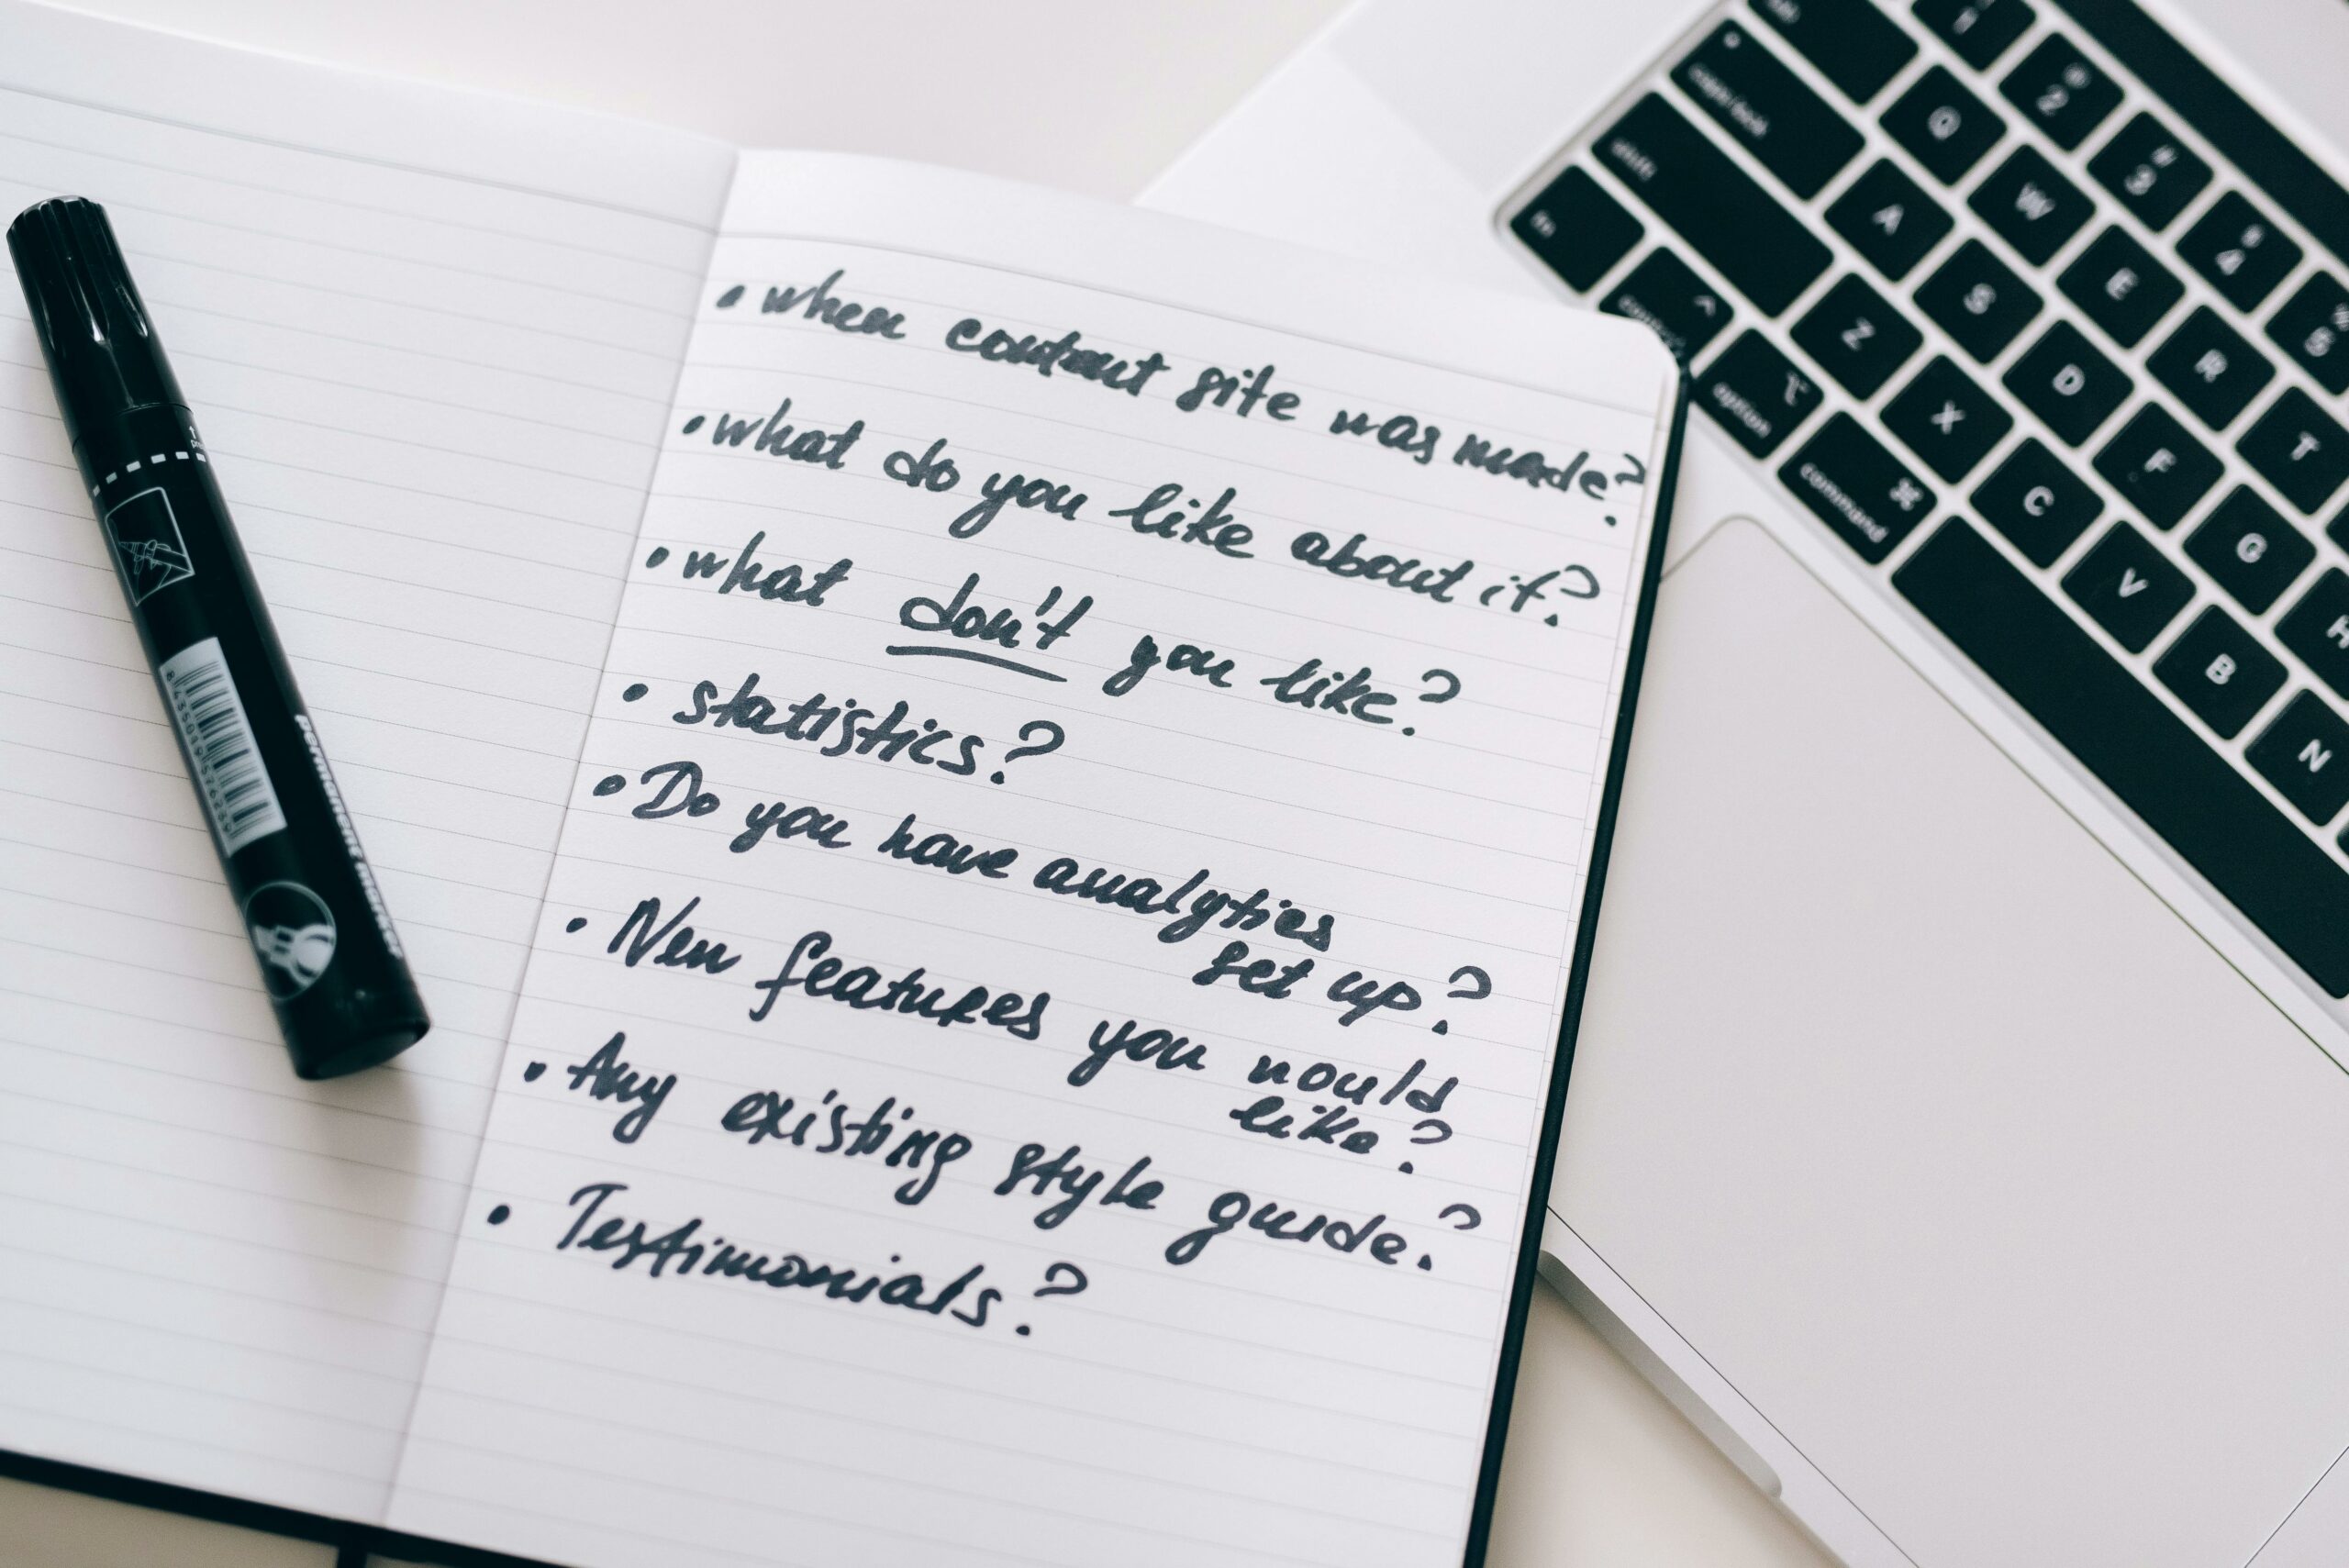 • when content site was made?
• what do you like about it?
• what don't you like?
• statistics?
• Do you have analytics
set up?
• New features you would
like?
• Any existing style guide?
• Testimonials?
permanent marker
8 435019 576239
1 2 3 4 5
Q W E R T
caps lock A S D F G H
shift Z X C V B N
fn control option command